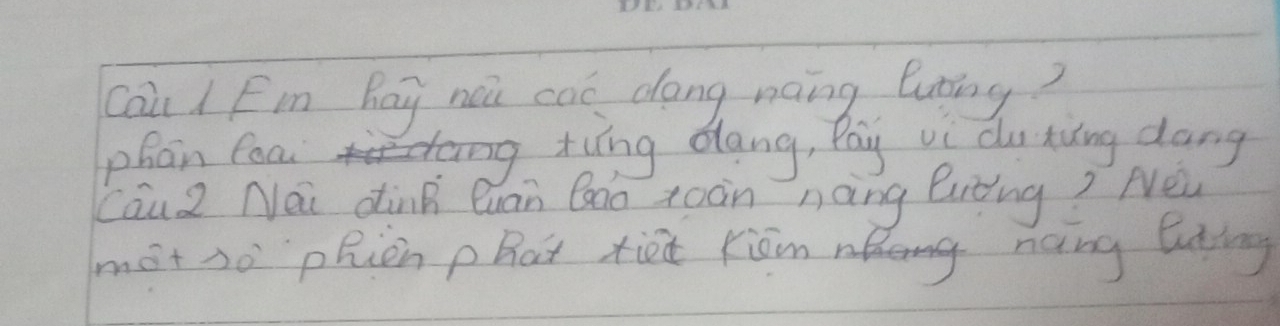 ĐỀ BÀI
Câu 1 Em hãy nêu các dạng năng lượng?
phân loại từng dạng, lấy ví dụ từng dạng
Câu 2 Nêu định luận bảo toàn năng lượng? Nêu
một số phiên phát tiết kiệm năng lượng